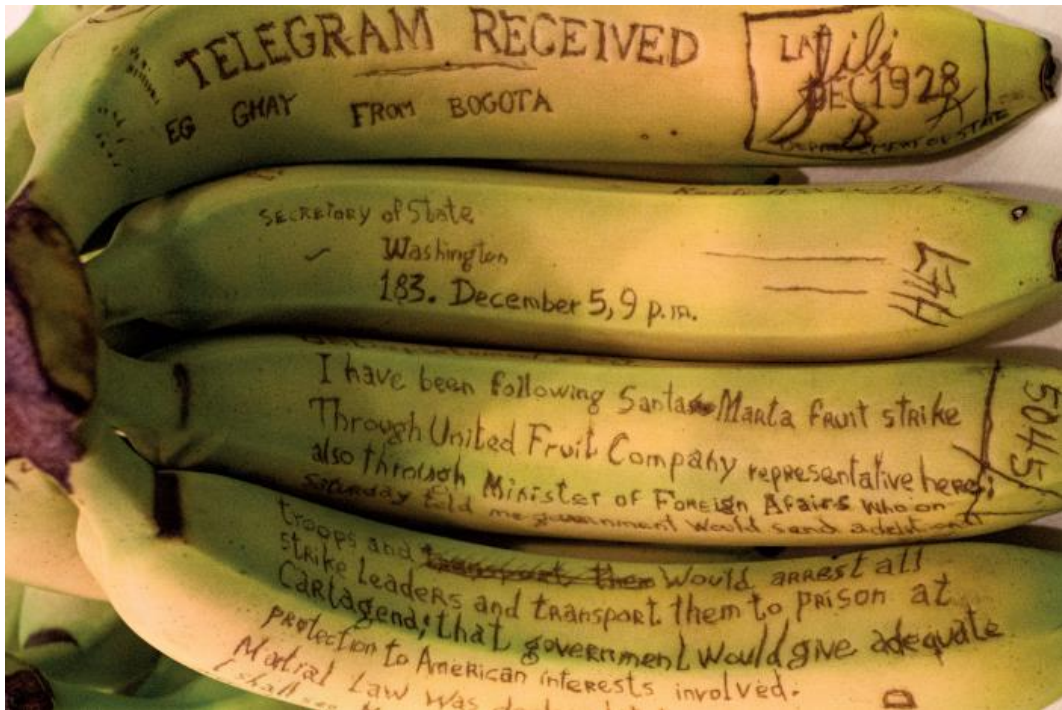 TELEGRAM RECEIVED
EG GMAY FROM BOGOTA
DEC 1928
DEPARTMENT OF STATE
SECRETORY of State
Washington
183. December 5, 9 p.m.
I have been following Santa Marta fruit strike
Through United Fruit Company representative here;
also through Minister of Foreign Afairs who on
Saturday told me government would send adetional
troops and would arrest all
strike Leaders and transport them to prison at
Cartagena; that government would give adequate
protection to American interests involved.
Martial Law was
shall
5045
D